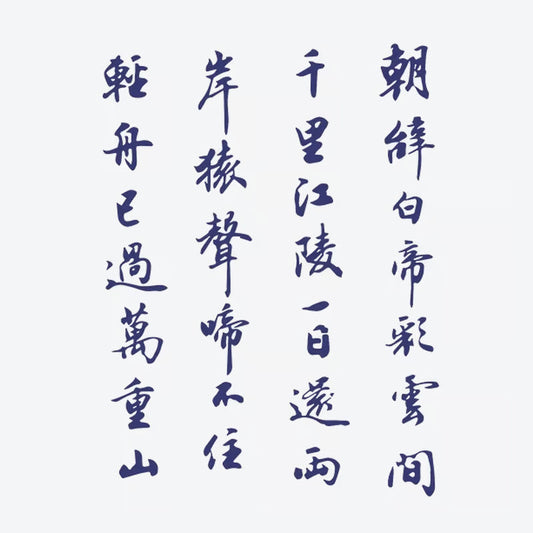 朝辭白帝彩雲間
千里江陵一日還兩
岸猿聲啼不住
輕舟已過萬重山